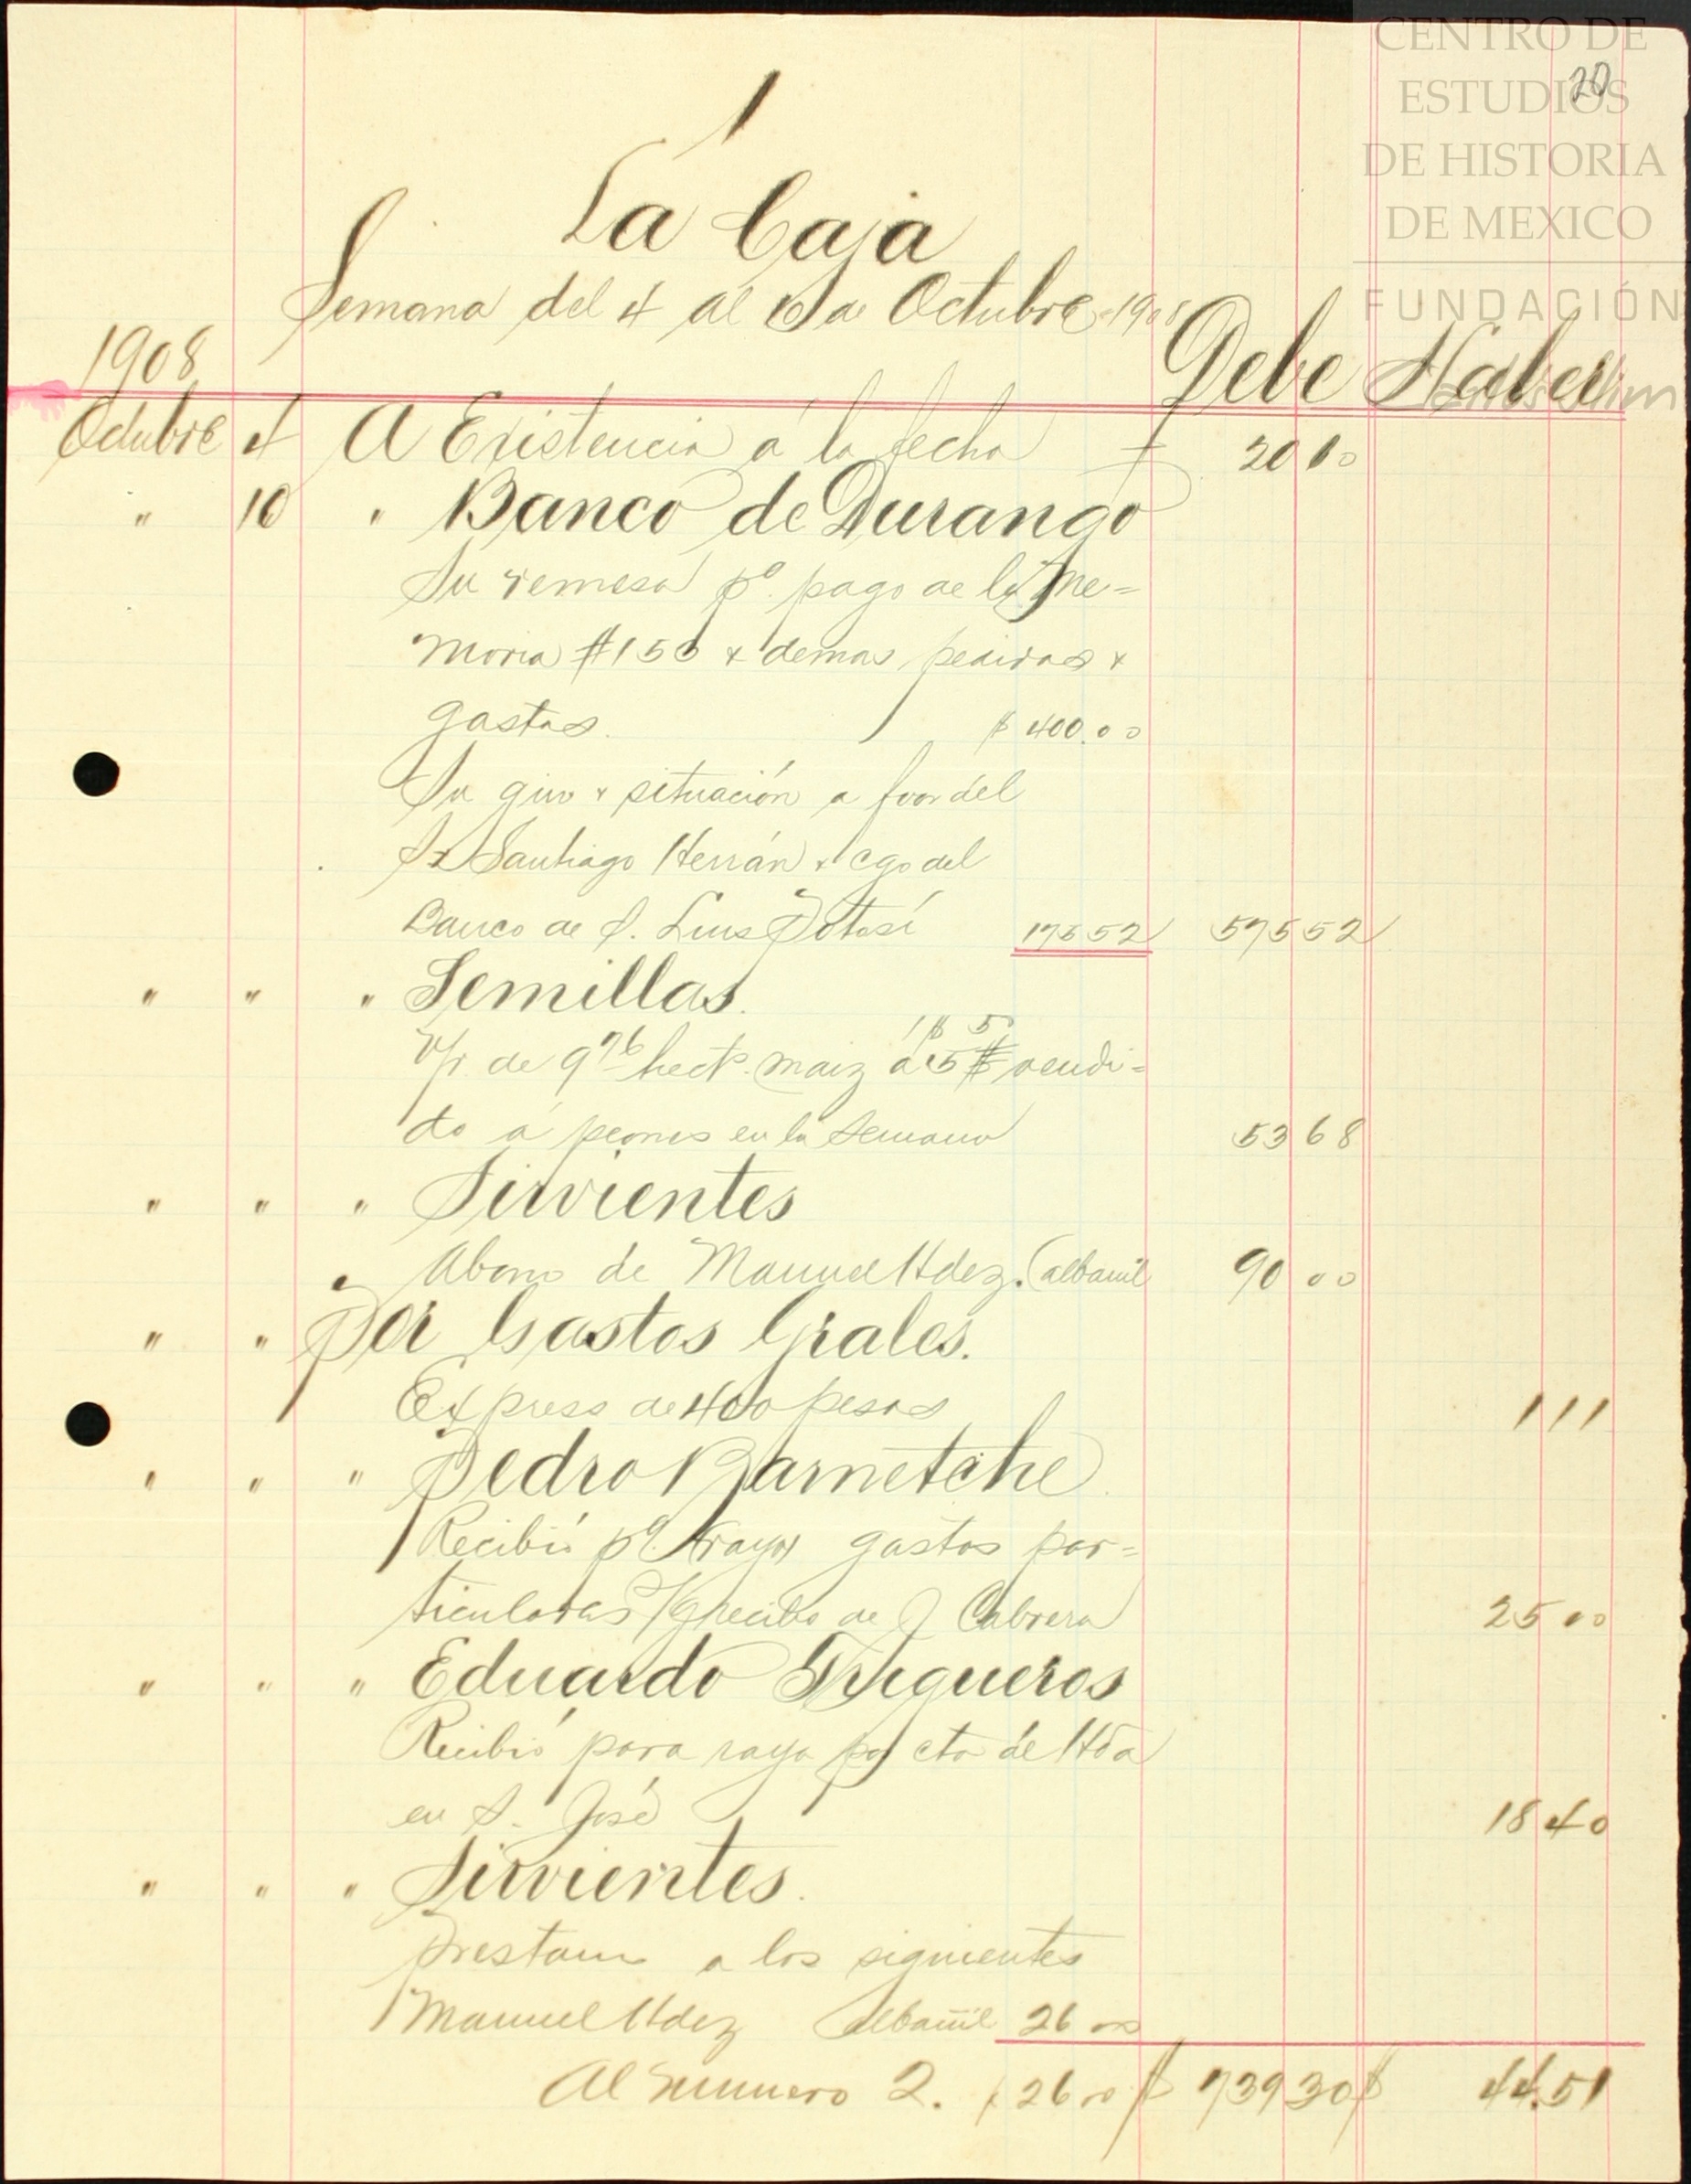 CENTRO DE
ESTUDIOS
DE HISTORIA
DE MEXICO
FUNDACIÓN
20
1
La Caja
Semana del 4 al 10 de Octubre 1908
1908 Debe Haber
Octubre 4 A Existencia á la fecha 20 10
" 10 " Banco de Durango
Su remesa pª. pago de la Me=
moria #150 & demas pedidos &
gastos. $ 400.00
Su giro & situación a fvor del
Sr Santiago Herrán & cgo del
Banco de S. Luis Potosí 175 52 575 52
" " " Semillas.
V/r. de 9 76 hects. maiz á 5 $ vendi=
1$ 5
do á peones en la semana 53 68
" " " Sirvientes
Abono de Manuel Hdez. (albañil 90 00
" " Por Gastos Grales.
Express de 400 pesos 1 11
" " " Pedro Barnetche
Recibió pª. raya gastos par=
ticulares recibo de J Cabrera 25 00
" " " Eduardo Trigueros
Recibió para raya por cta de Hda
en S. José 18 40
" " " Sirvientes.
Prestamo a los siguientes
Manuel Hdez albañil 26 00
Al numero 2. $ 26 00 $ 739 30 $ 44.51